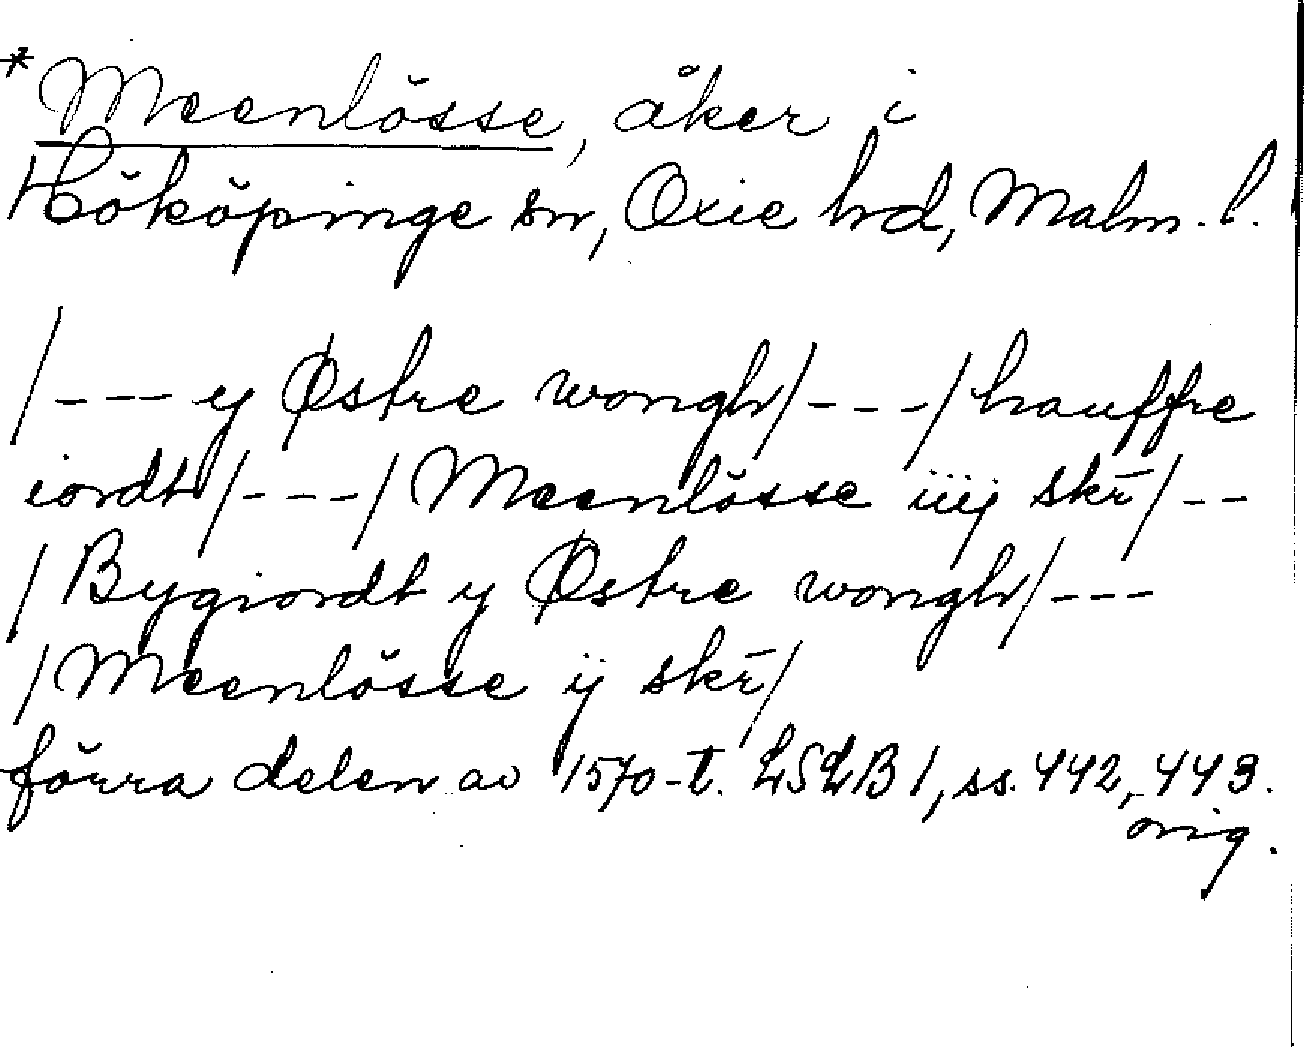 *Meenlösse, åker i
Hököpinge sn, Oxie hd, Malm. l.
/--- y Østre wongh/---/hauffre
iordt/---/Meenlösse iiij skr̄/--
/Bygiordt y Østre wongh/---
/Meenlösse ij skr̄/
förra delen av 1570-t. LSLB 1, ss. 442, 443.
orig.